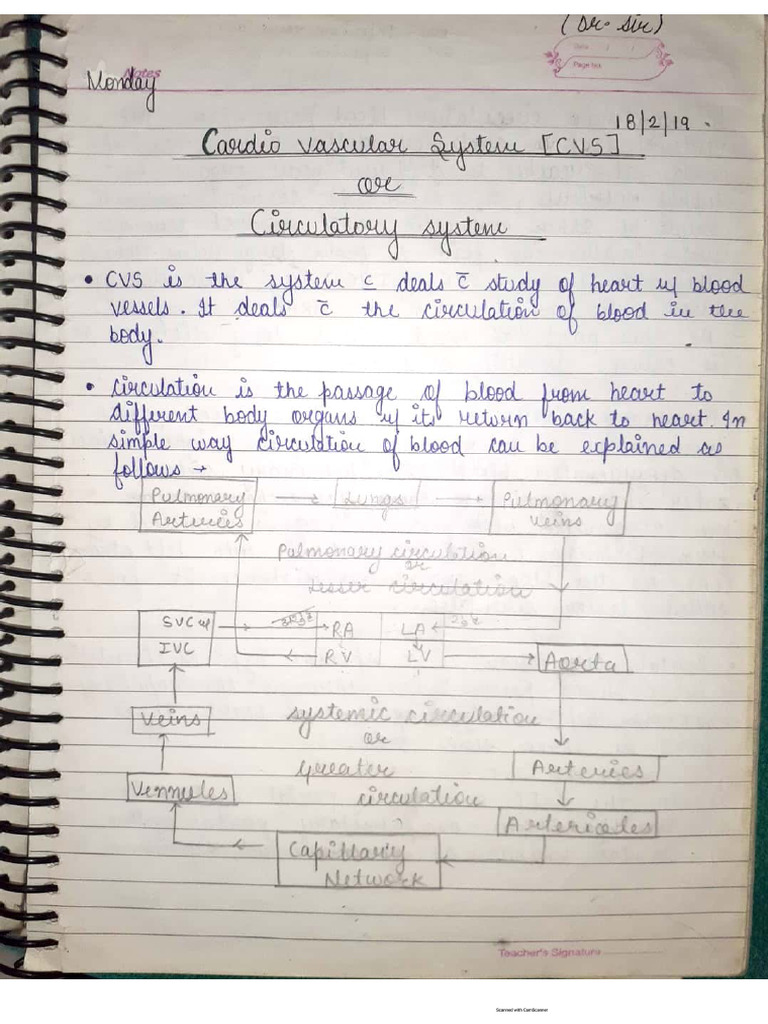 (Dr. Sir)
Date / /
Page No.
Notes
Monday
18/2/19.
Cardio vascular System [CVS]
or
Circulatory system
• CVS is the system c̄ deals c̄ study of heart & blood
vessels. It deals c̄ the circulation of blood in the
body.
• Circulation is the passage of blood from heart to
different body organs & its return back to heart. In
simple way circulation of blood can be explained as
follows →
Pulmonary Arteries → Lungs → Pulmonary Veins
Pulmonary circulation
or
Lesser circulation
SVC & → RA LA ←
IVC ← RV LV → Aorta
Veins
systemic circulation
or
Greater
circulation
Arteries
Vennules
Arterioles
Capillary
Network
Teacher's Signature
Scanned with CamScanner